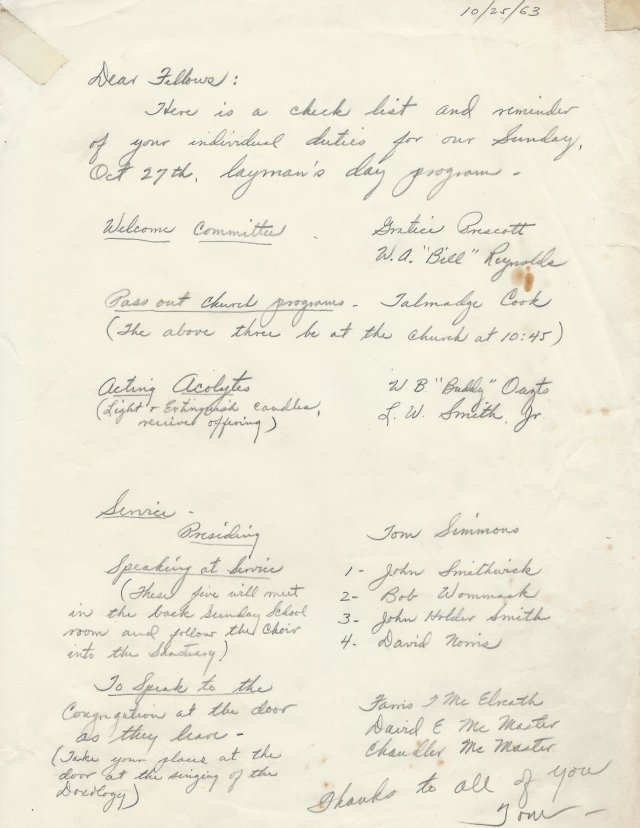 10/25/63
Dear Fellows:
Here is a check list and reminder
of your individual duties for our Sunday,
Oct 27th, layman's day program -
Welcome Committee Gratice Prescott
W. A. "Bill" Reynolds
Pass out church programs - Talmadge Cook
(The above three be at the church at 10:45)
Acting Acolytes W B "Buddy" Ouzts
(Light & Extinguish candles, L. W. Smith, Jr
receive offering)
Service -
Presiding Tom Simmons
Speaking at Service 1- John Smithwick
(These five will meet 2- Bob Wommack
in the back Sunday School 3- John Holder Smith
room and follow the Choir 4- David Norris
into the Sanctuary)
To Speak to the Farris J McElreath
Congregation at the door David E McMaster
as they leave - Chandler McMaster
(Take your place at the
door at the singing of the
Doxology)
Thanks to all of you
Tom -